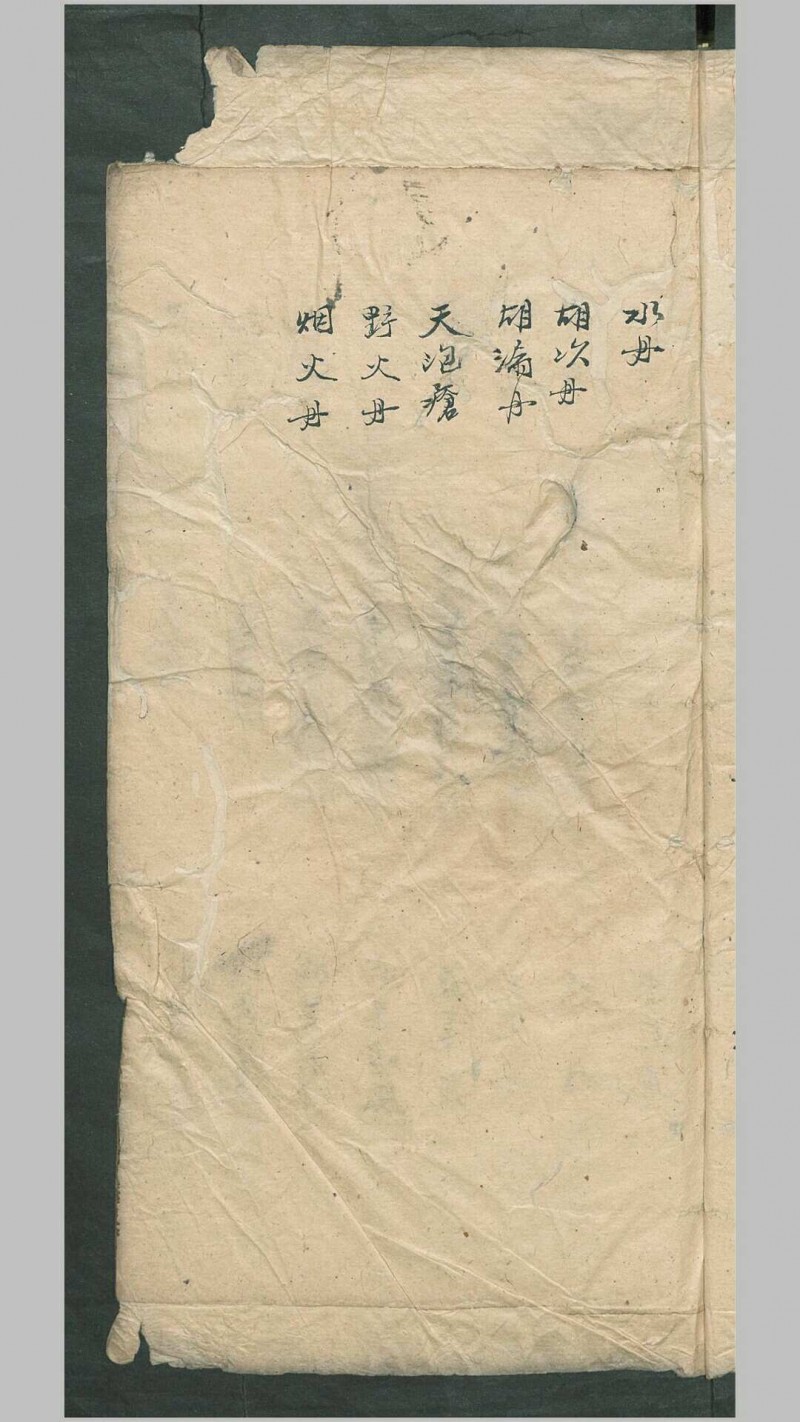 水丹
胡次丹
胡漏丹
天泡瘡
野火丹
烟火丹